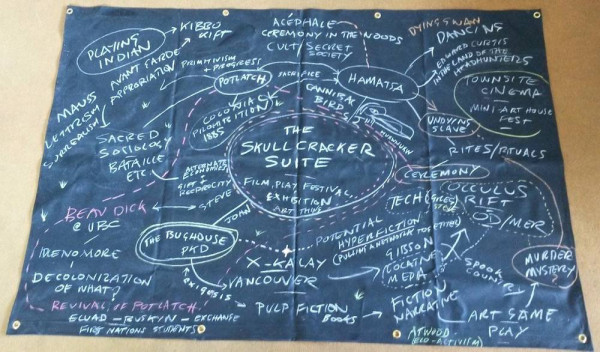 PLAYING
INDIAN
KIBBO
KIFT
AVANT GARDE
APPROPRIATION
PRIMITIVISM
+ PROGRESS!
POTLATCH
SACRIFICE
ACÉPHALE
CEREMONY IN THE WOODS
CULT/SECRET
SOCIETY
HAMATSA
CANNIBAL
BIRD
DYING SWAN
DANCING
EDWARD CURTIS
IN THE LAND OF THE
HEADHUNTERS
TOWNSITE
CINEMA
MINI-ART HOUSE
FEST
UNDYING
SLAVE
RITES/RITUALS
CEREMONY
MAUSS
LETTRISM
SURREALISM
SACRED
SOCIOLOGY
BATAILLE
ETC
PROHIBITION!
1885
THE
SKULLCRACKER
SUITE
FILM, PLAY, FESTIVAL,
EXHIBITION
ART THING
ALTERNATE
ECONOMIES
GIFT +
RECIPROCITY
STEVE
JOAN
BEAU DICK
@ UBC
THE BUGHOUSE
PKD
EXEGESIS
IDLE NO MORE
DECOLONIZATION
OF WHAT?
REVIVAL OF POTLATCH!
RUSKIN
EXCHANGE
FIRST NATIONS STUDENTS
X-KALAY
VANCOUVER
PULP FICTION
BOOKS
POTENTIAL
HYPERFICTION
TECH
OCCULUS
RIFT
OD/MER
GIBSON
LOCATIVE
MEDIA
SPOOK
COUNTRY
MURDER
MYSTERY?
FICTION
NARRATIVE
ART GAME
PLAY
ATWOOD
(ECO-ACTIVISM)